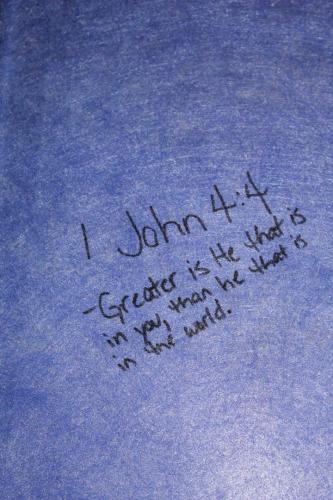 1 John 4:4
-Greater is He that is
in you, than he that is
in the world.